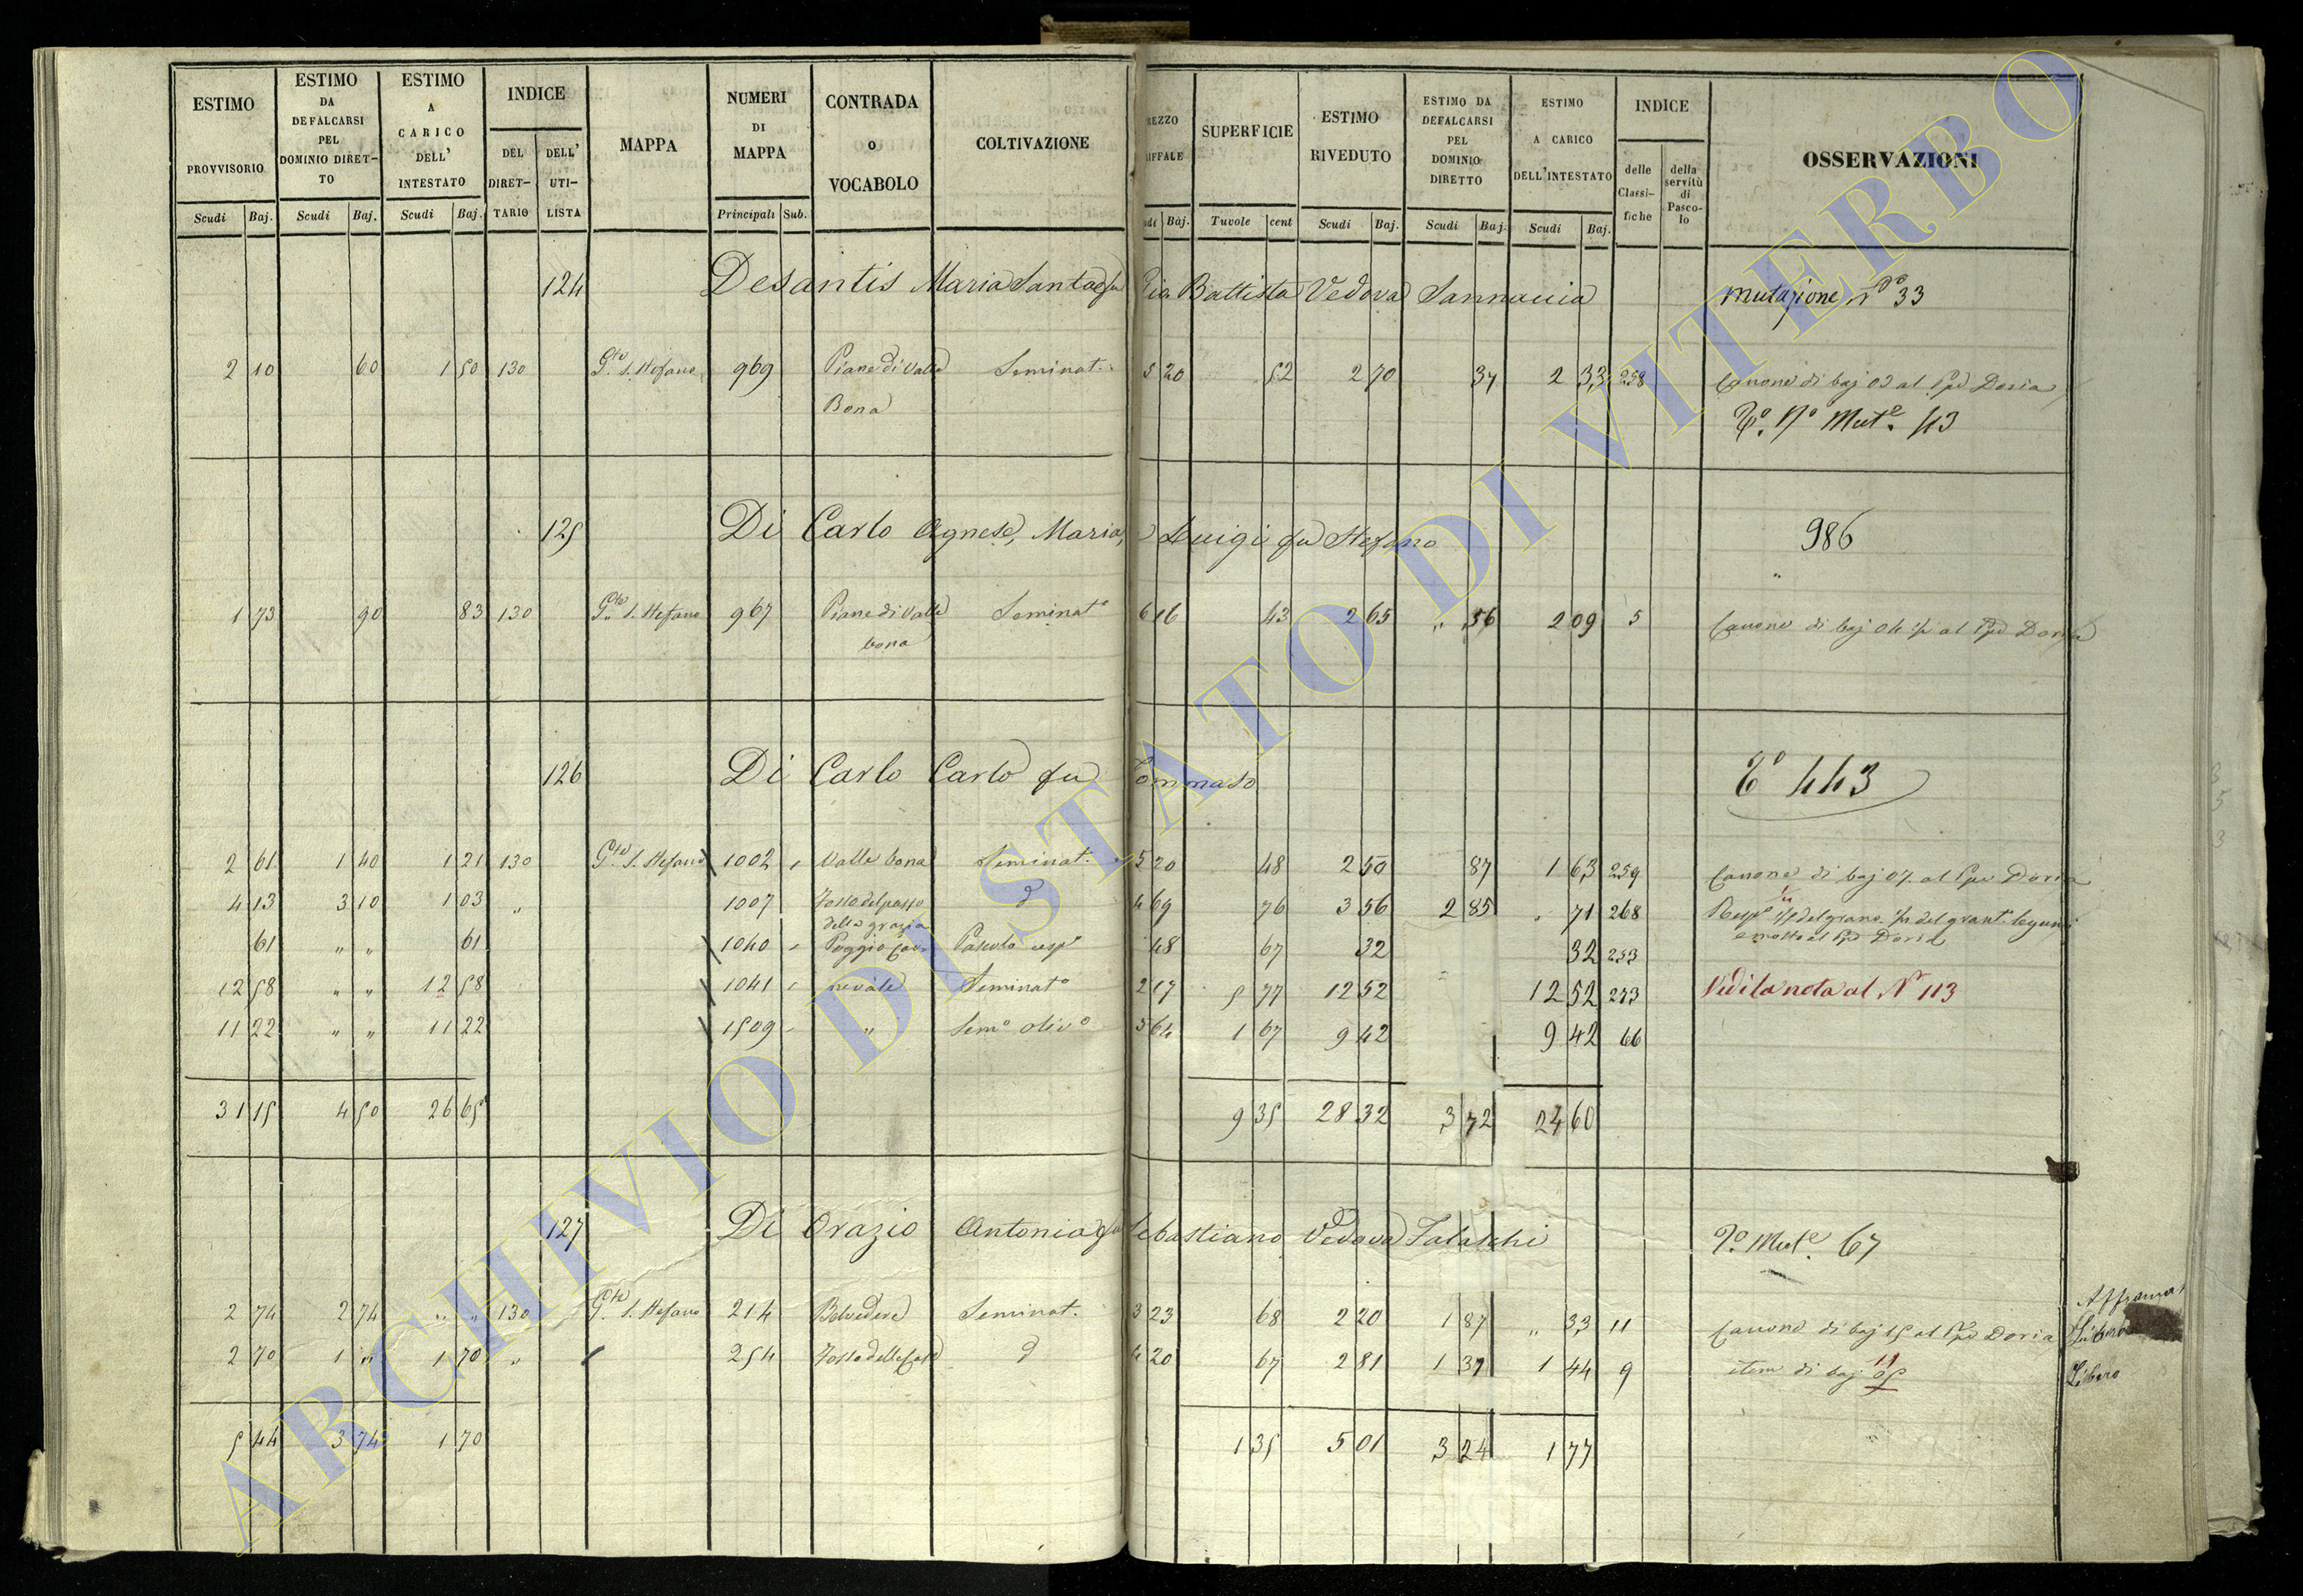 ESTIMO PROVVISORIO
ESTIMO DA DEFALCARSI PEL DOMINIO DIRET-TO
ESTIMO A CARICO DELL' INTESTATO
INDICE
DEL DIRET-TARIO
DELL' UTI-LISTA
MAPPA
NUMERI DI MAPPA
CONTRADA o VOCABOLO
COLTIVAZIONE
REZZO IFFALE
SUPERFICIE
ESTIMO RIVEDUTO
ESTIMO DA DEFALCARSI PEL DOMINIO DIRETTO
ESTIMO A CARICO DELL'INTESTATO
INDICE
delle Classi-fiche
della servitù di Pasco-lo
OSSERVAZIONI
Scudi Baj. Scudi Baj. Scudi Baj. Principali Sub. di Baj. Tavole cent Scudi Baj. Scudi Baj. Scudi Baj.
124 Desantis Maria Santa fu Gia Battista Vedova Mutazione No 33
2 10 60 1 50 130 S. Stefano 969 Piane di Valle Seminat. 5 20 52 2 70 37 2 33 258 Canone di baj 02 al Doria
Bona
To. No Mute. 43
125 Di Carlo Agnese, Maria, e Luigi fu Stefano 986
1 73 90 83 130 S. Stefano 967 Piane di Valle Seminato 6 16 43 2 65 " 56 2 09 5 Canone di baj 04 al Doria
bona
126 Di Carlo Carlo fu Tommaso To 443
2 61 1 40 1 21 130 S. Stefano 1002 Valle bona Seminat. 5 20 48 2 50 87 1 63 259 Canone di baj 07. al Doria
4 13 3 10 1 03 " 1007 Fosso del passo d 4 69 76 3 56 2 85 71 268 del grano
della grazia
61 " " 61 1040 Poggio Pascolo 48 67 32 32 253 Doria
12 58 " " 12 58 1041 nevale Seminato 2 17 5 77 12 52 12 52 273 Vedi la nota al No 113
11 22 " " 11 22 1509 " Semo olivo 5 64 1 67 9 42 9 42 66
31 15 4 50 26 65 9 35 28 32 3 72 24 60
127 Di Orazio Antonia fu Sebastiano Vedova To. Mute. 67
2 74 2 74 " " 130 S. Stefano 214 Belvedere Seminat. 3 23 68 2 20 1 87 " 33 11 Canone di baj 15 al Doria Libero
2 70 1 " 1 70 " 254 Fosso delle d 4 20 67 2 81 1 37 1 44 9 item di baj 11 Libero
5 44 3 74 1 70 1 35 5 01 3 24 1 77
ARCHIVIO DI STATO DI VITERBO